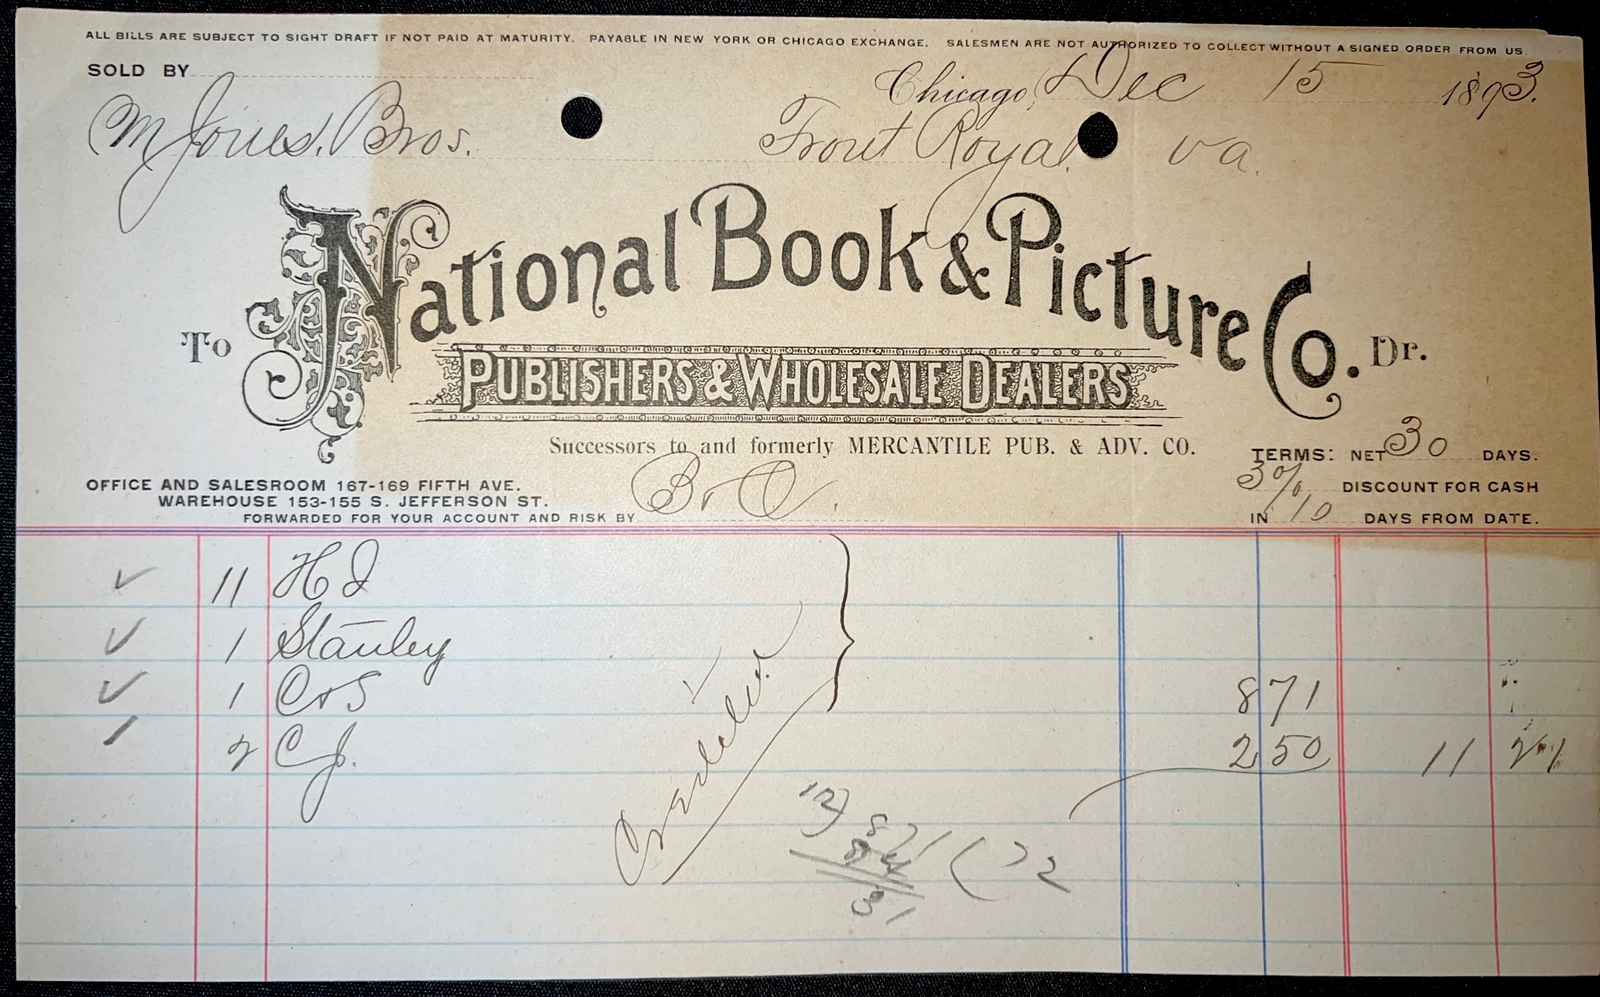 ALL BILLS ARE SUBJECT TO SIGHT DRAFT IF NOT PAID AT MATURITY. PAYABLE IN NEW YORK OR CHICAGO EXCHANGE. SALESMEN ARE NOT AUTHORIZED TO COLLECT WITHOUT A SIGNED ORDER FROM US
SOLD BY
Chicago, Dec 15 1893.
M Jones Bros. Front Royal Va.
To National Book & Picture Co. Dr.
PUBLISHERS & WHOLESALE DEALERS
Successors to and formerly MERCANTILE PUB. & ADV. CO.
TERMS: NET 30 DAYS.
3% DISCOUNT FOR CASH
IN 10 DAYS FROM DATE.
OFFICE AND SALESROOM 167-169 FIFTH AVE.
WAREHOUSE 153-155 S. JEFFERSON ST.
FORWARDED FOR YOUR ACCOUNT AND RISK BY B & O.
11 H
1 Stanley
1 C & S 8 71
2 C J. 2 50 11 21
12) 871 (72
84
31